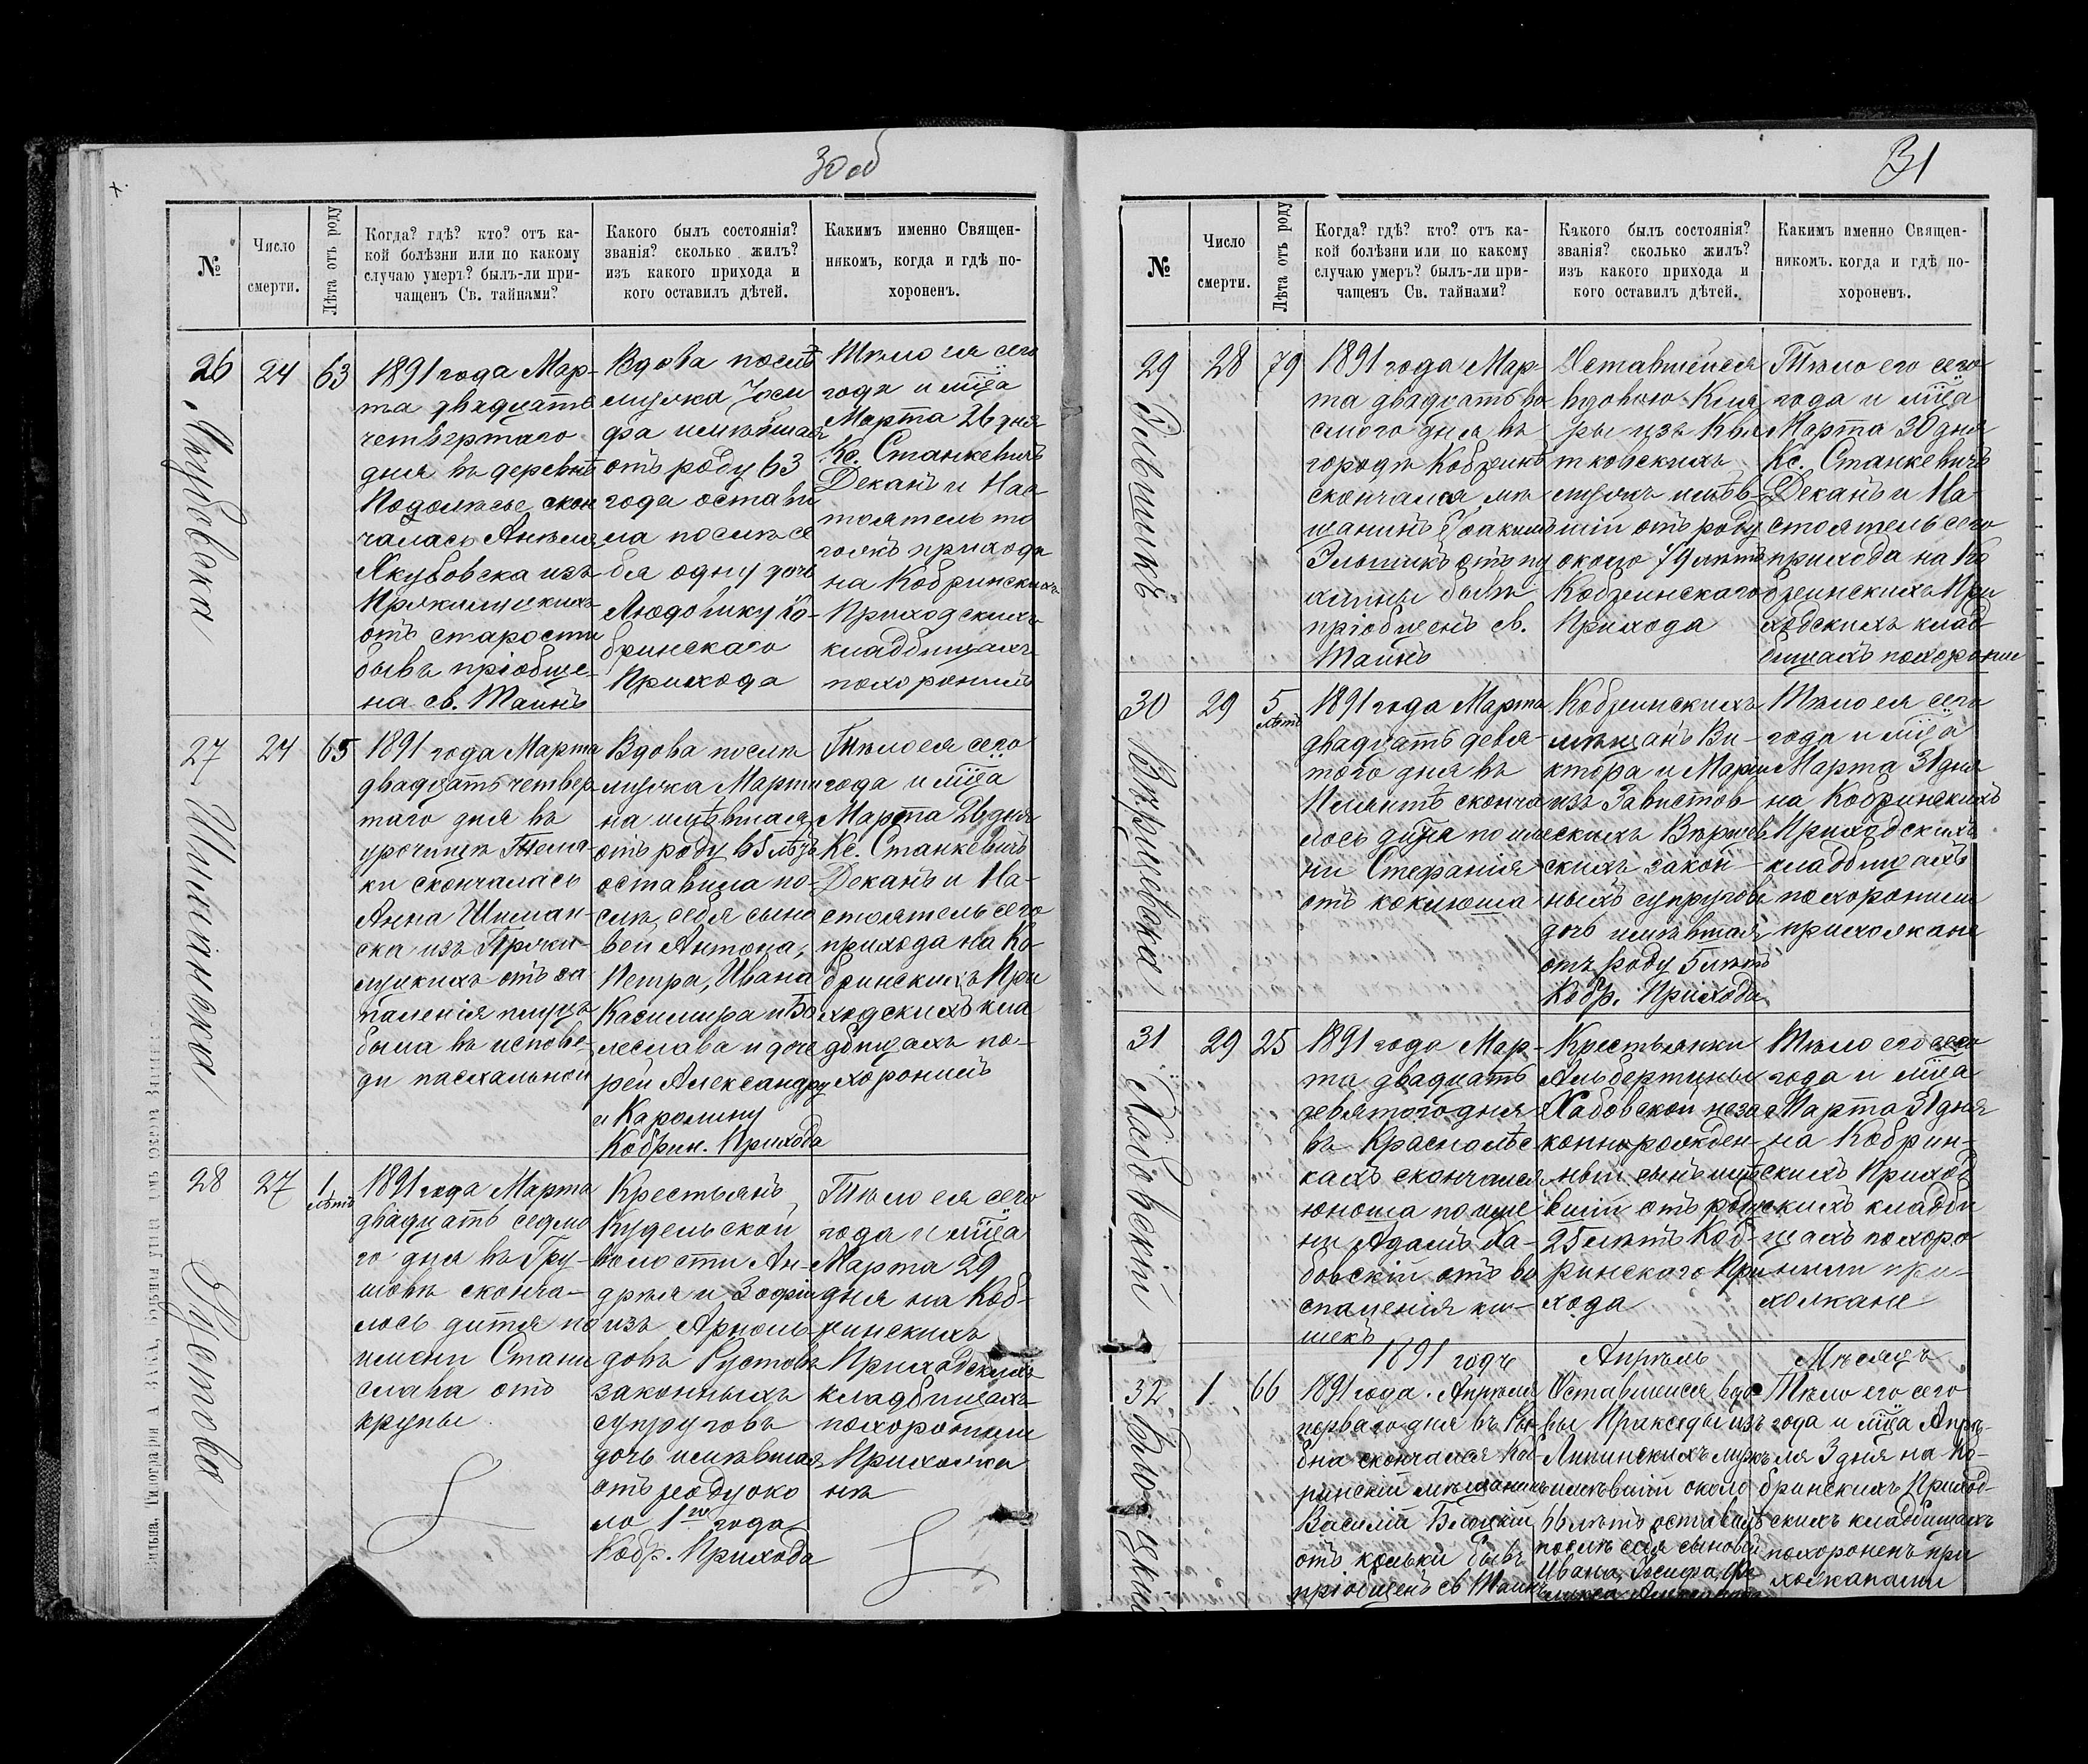 30 об
№
Число
смерти.
Лѣта отъ роду
Когда? гдѣ? кто? отъ ка-
кой болѣзни или по какому
случаю умеръ? былъ-ли при-
чащенъ Св. тайнами?
Какого былъ состоянія?
званія? сколько жилъ?
изъ какого прихода и
кого оставилъ дѣтей.
Какимъ именно Священ-
никомъ, когда и гдѣ по-
хороненъ.
26
Якубовска
24
63
1891 года Мар-
та двадцать
четвертаго
дня въ деревнѣ
Подолѣсье скон
чалась Анѣля
Якубовска изъ
отъ старости
бывъ пріобще-
на св. Таинъ
Вдова послѣ
мужа Іоси
фа имѣвшая
отъ роду 63
года остави
ла послѣ се
бя одну дочь
Людовику Ко-
бринскаго
Прихода
Тѣло ея сего
года и мѣца
Марта 26 дня
Кс. Станкевичъ
Деканъ и Нас
тоятель то
гожъ прихода
на Кобринскихъ
Приходскихъ
кладбищахъ
похоронилъ
27
Шиманска
24
65
1891 года Марта
двадцать четвер
таго дня въ
урочищѣ
ки скончалась
Анна Шиман-
ска изъ
отъ во
паленія
была въ исповѣ-
ди пасхальной
Вдова послѣ
мужа Марти
на имѣвшая
отъ роду 65 лѣтъ
оставила по-
слѣ себя сыно
вей Антона,
Петра, Ивана
Казимира и Бо
леслава и доче
рей Александру
и Каролину
Кобрин. Прихода
Тѣло ея сего
года и мѣца
Марта 26 дня
Кс. Станкевичъ
Деканъ и На-
стоятель сего
прихода на Ко-
бринскихъ При
ходскихъ кла
дбищахъ по-
хоронилъ
28
Рустова
27
1
лѣтъ
1891 года Марта
двадцать седмо
го дня въ Гру-
шовѣ сконча-
лось дитя по
имени Стани
слава отъ
крупы
Крестьянъ
волости Ан-
дрея и Зофіи
изъ Арноль-
довъ Рустовъ
законныхъ
супруговъ
дочь имѣвшая
отъ роду око
ло 1го года
Кобр. Прихода
Тѣло ея сего
года и мѣца
Марта 29
дня на Коб-
ринскихъ
Приходскихъ
кладбищахъ
похоронили
Прихожа
не
31
№
Число
смерти.
Лѣта отъ роду
Когда? гдѣ? кто? отъ ка-
кой болѣзни или по какому
случаю умеръ? былъ-ли при-
чащенъ Св. тайнами?
Какого былъ состоянія?
званія? сколько жилъ?
изъ какого прихода и
кого оставилъ дѣтей.
Какимъ именно Священ-
никомъ. когда и гдѣ по-
хороненъ.
29
28
79
1891 года Мар-
та двадцать во
сьмого дня въ
городѣ Кобринѣ
скончался мѣ
щанинъ Іоакимъ
отъ пу
хлины бывъ
пріобщенъ св.
Таинъ
Оставшейся
вдовою Кля
ры изъ Кви
тковскихъ
мужъ имѣв-
шій отъ роду
около 79 лѣтъ
Кобринскаго
Прихода
Тѣло его сего
года и мѣца
Марта 30 дня
Кс. Станкевичъ
Деканъ и На-
стоятель сего
прихода на Ко
бринскихъ При
ходскихъ клад
бищахъ похоронил
30
29
5
лѣтъ
1891 года Марта
двадцать девя-
того дня въ
сконча
лось дитя по име
ни Стефанія
отъ коклюша
Кобринскихъ
мѣщанъ Ви-
ктора и Маріи
изъ Завистов
скихъ
скихъ закон-
ныхъ супруговъ
дочь имѣвшая
отъ роду 5 лѣтъ
Кобр. Прихода
Тѣло ея сего
года и мѣца
Марта 31 дня
на Кобринскихъ
Приходскихъ
кладбищахъ
похоронили
прихожане
31
Хабовскій
29
25
1891 года Мар-
та двадцать
девятого дня
въ
кахъ скончался
юноша по име
ни Адамъ Ха-
бовскій отъ во
спаленія ки-
шекъ
Крестьянки
Альбертины
Хабовской неза
коннорожден-
ный сынъ имѣ
вшій отъ роду
25 лѣтъ Коб-
ринскаго При
хода
Тѣло его сего
года и мѣца
Марта 31 дня
на Кобрин-
скихъ Приход
скихъ кладби
щахъ похоро
нили при-
хожане
1891 годъ Апрѣль Мѣсяцъ
32
1
66
1891 года Апрѣля
перваго дня въ
скончался Коб
ринскій мѣщанинъ
Василій
отъ кольки бывъ
пріобщенъ св Таинъ
Оставшейся вдо
вы Пракседы изъ
Липинскихъ мужъ
имѣвшій около
66 лѣтъ оставивъ
послѣ себя сыновей
Ивана, Іосифа,
Тѣло его сего
года и мѣца Апрѣ-
ля 3 дня на Ко-
бринскихъ Приход-
скихъ кладбищахъ
похороненъ при
хожанами